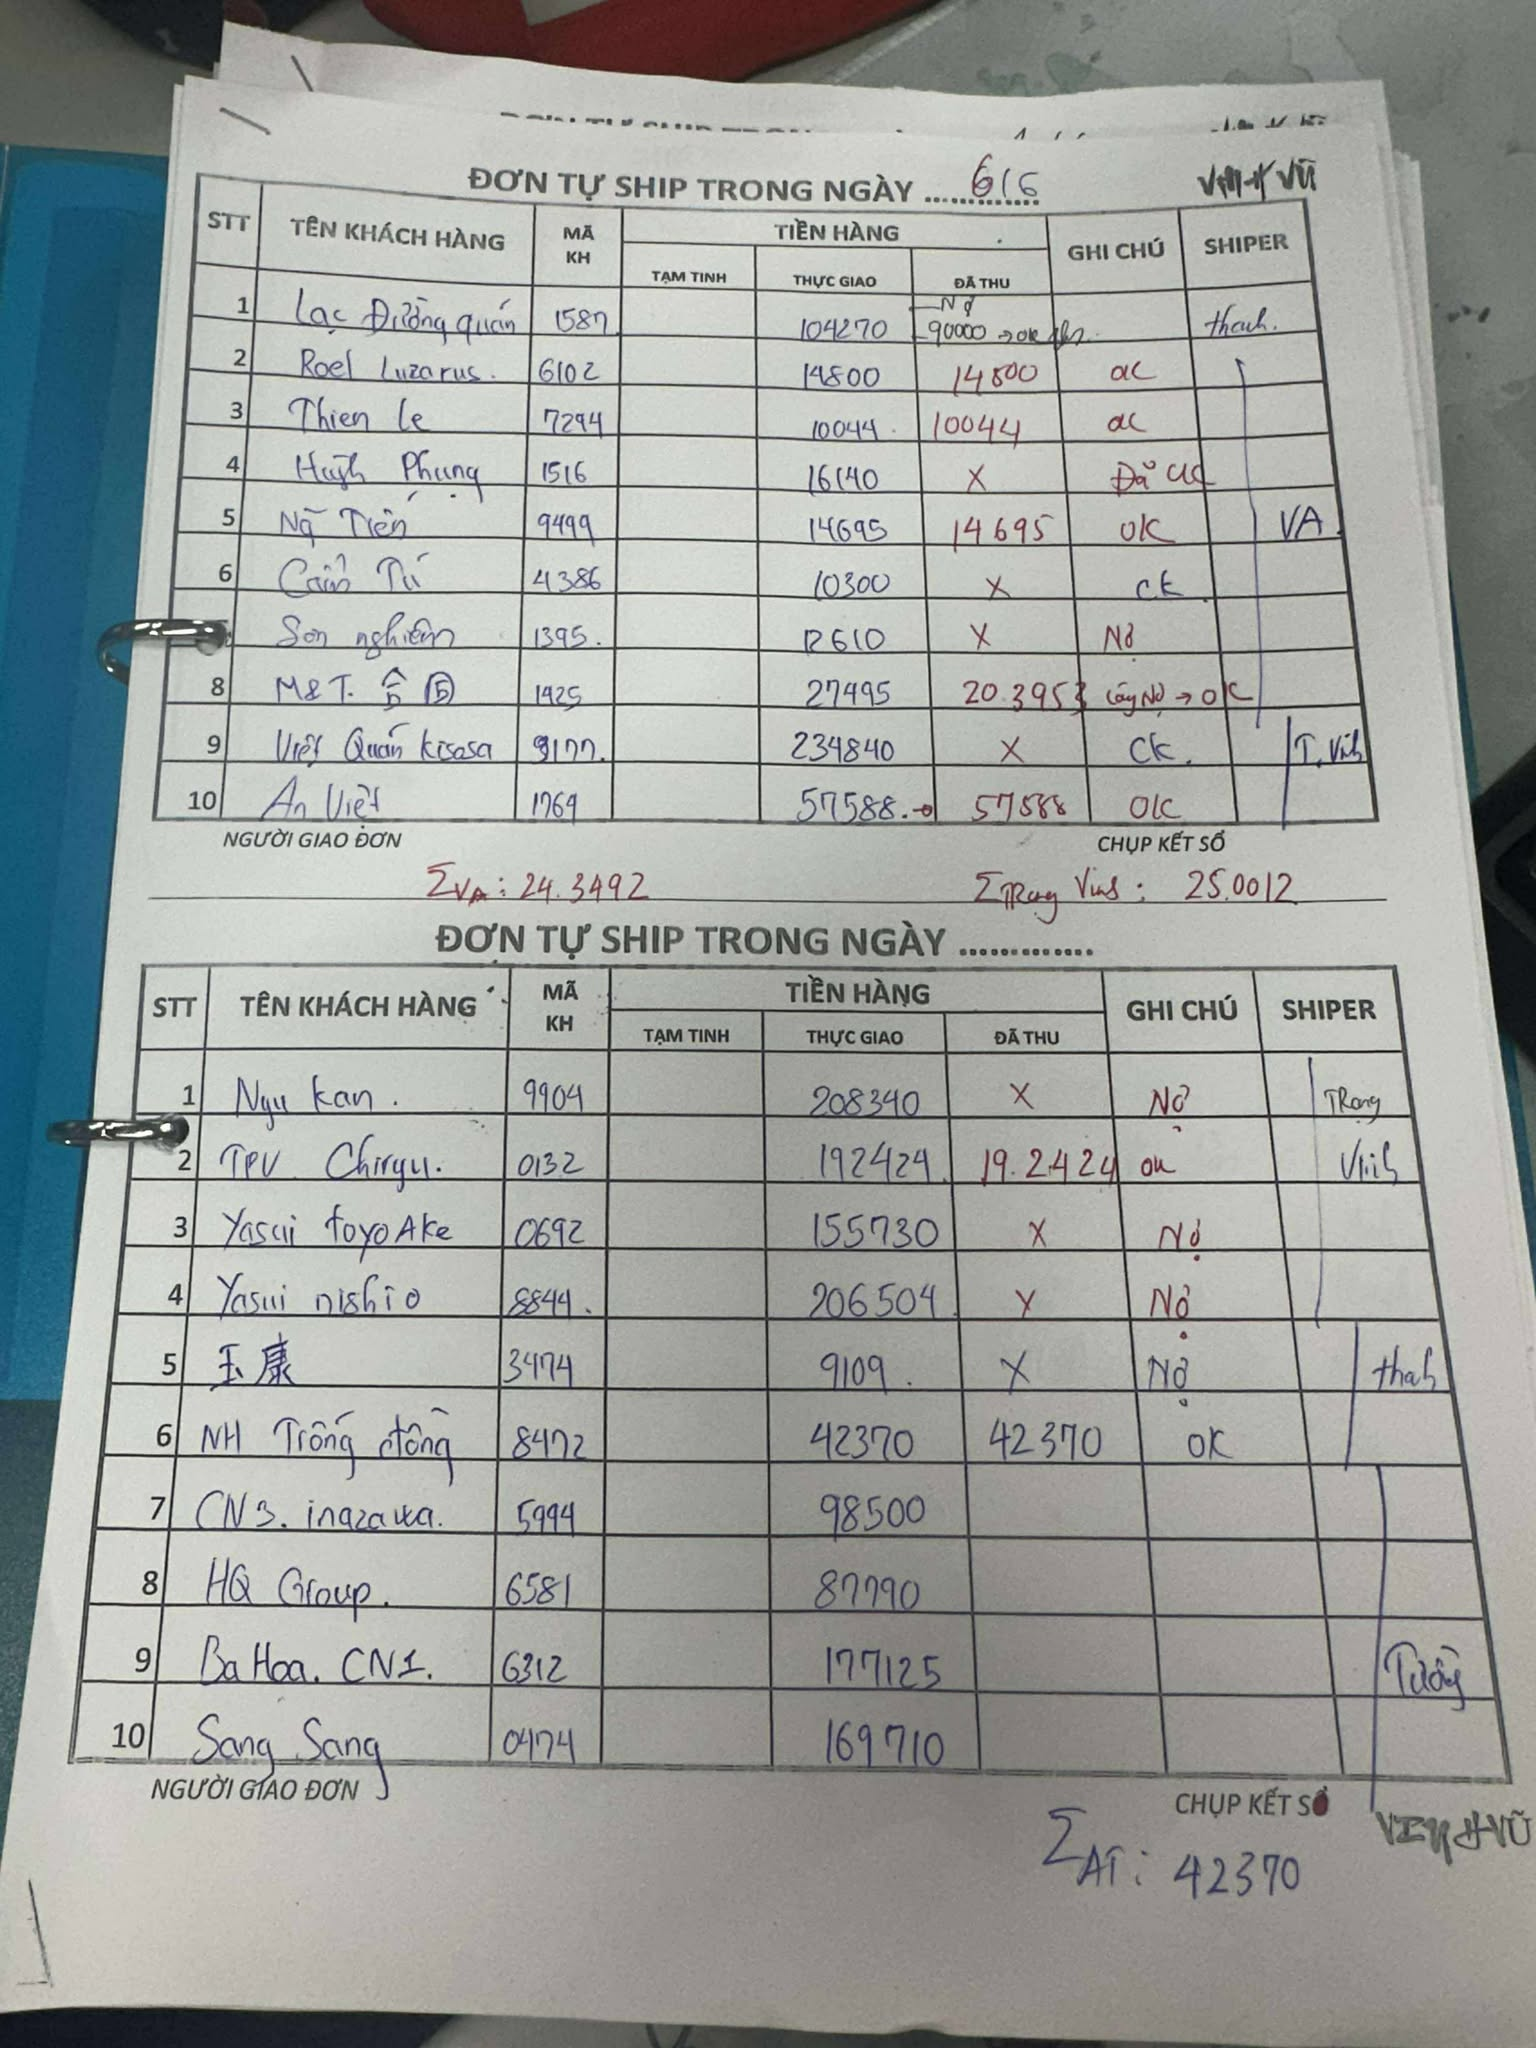 ĐƠN TỰ SHIP TRONG NGÀY ............. 6/6 VŨ
STT TÊN KHÁCH HÀNG MÃ KH TIỀN HÀNG GHI CHÚ SHIPER
TẠM TINH THỰC GIAO ĐÃ THU
1 Lạc Đường quán 1587 104270 Nợ 90000 → ok thanh.
2 Roel Luzarus. 6102 14800 14800 ok
3 Thien le 7294 10044 10044 ok
4 Huỳnh Phụng 1516 16140 X Đã CK
5 Tiến 9499 14695 14695 OK VA
6 Cẩm Tú 4386 10300 X CK
Sơn nghiêm 1395. 12610 X Nợ
8 M&T. 1925 27495 20.3953 Nợ → OK
9 Việt Quán kisosa 9177. 234840 X CK. T. Vinh
10 An Việt 1769 57588. → 57588 OK
NGƯỜI GIAO ĐƠN CHỤP KẾT SỔ
ΣVA: 24.3492 ΣTRọng Vinh: 25.0012
ĐƠN TỰ SHIP TRONG NGÀY .............
STT TÊN KHÁCH HÀNG MÃ KH TIỀN HÀNG GHI CHÚ SHIPER
TẠM TINH THỰC GIAO ĐÃ THU
1 Ngu kan. 9904 208340 X Nợ TRọng
2 TPV Chiryu. 0132 192424 19.2424 ok Vinh
3 Yasui toyoAke 0692 155730 X Nợ
4 Yasui nishio 8844. 206504 X Nợ
5 玉康 3474 9109. X Nợ thanh
6 NH Trống đồng 8472 42370 42370 OK
7 CN3. inazawa. 5994 98500
8 HQ Group. 6581 87790
9 Ba Hoa. CN1. 6312 177125 Tường
10 Sang Sang 0474 169710
NGƯỜI GIAO ĐƠN CHỤP KẾT SỔ
VINH VŨ
ΣAT: 42370